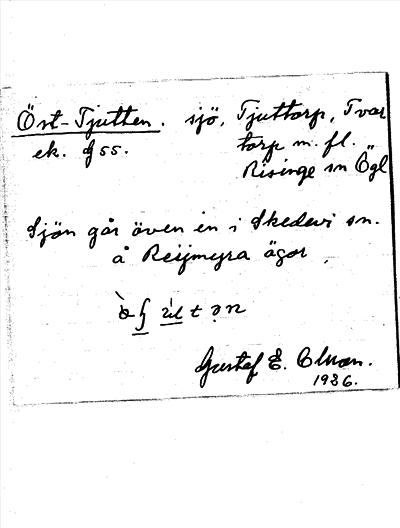 Öst-Tjutten. sjö, Tjuttorp, Tvar
ek. fss. torp m. fl.
Risinge sn Ögl
Sjön går även in i Skedevi sn.
å Reijmyra ägor.
Gustaf E.
1936.